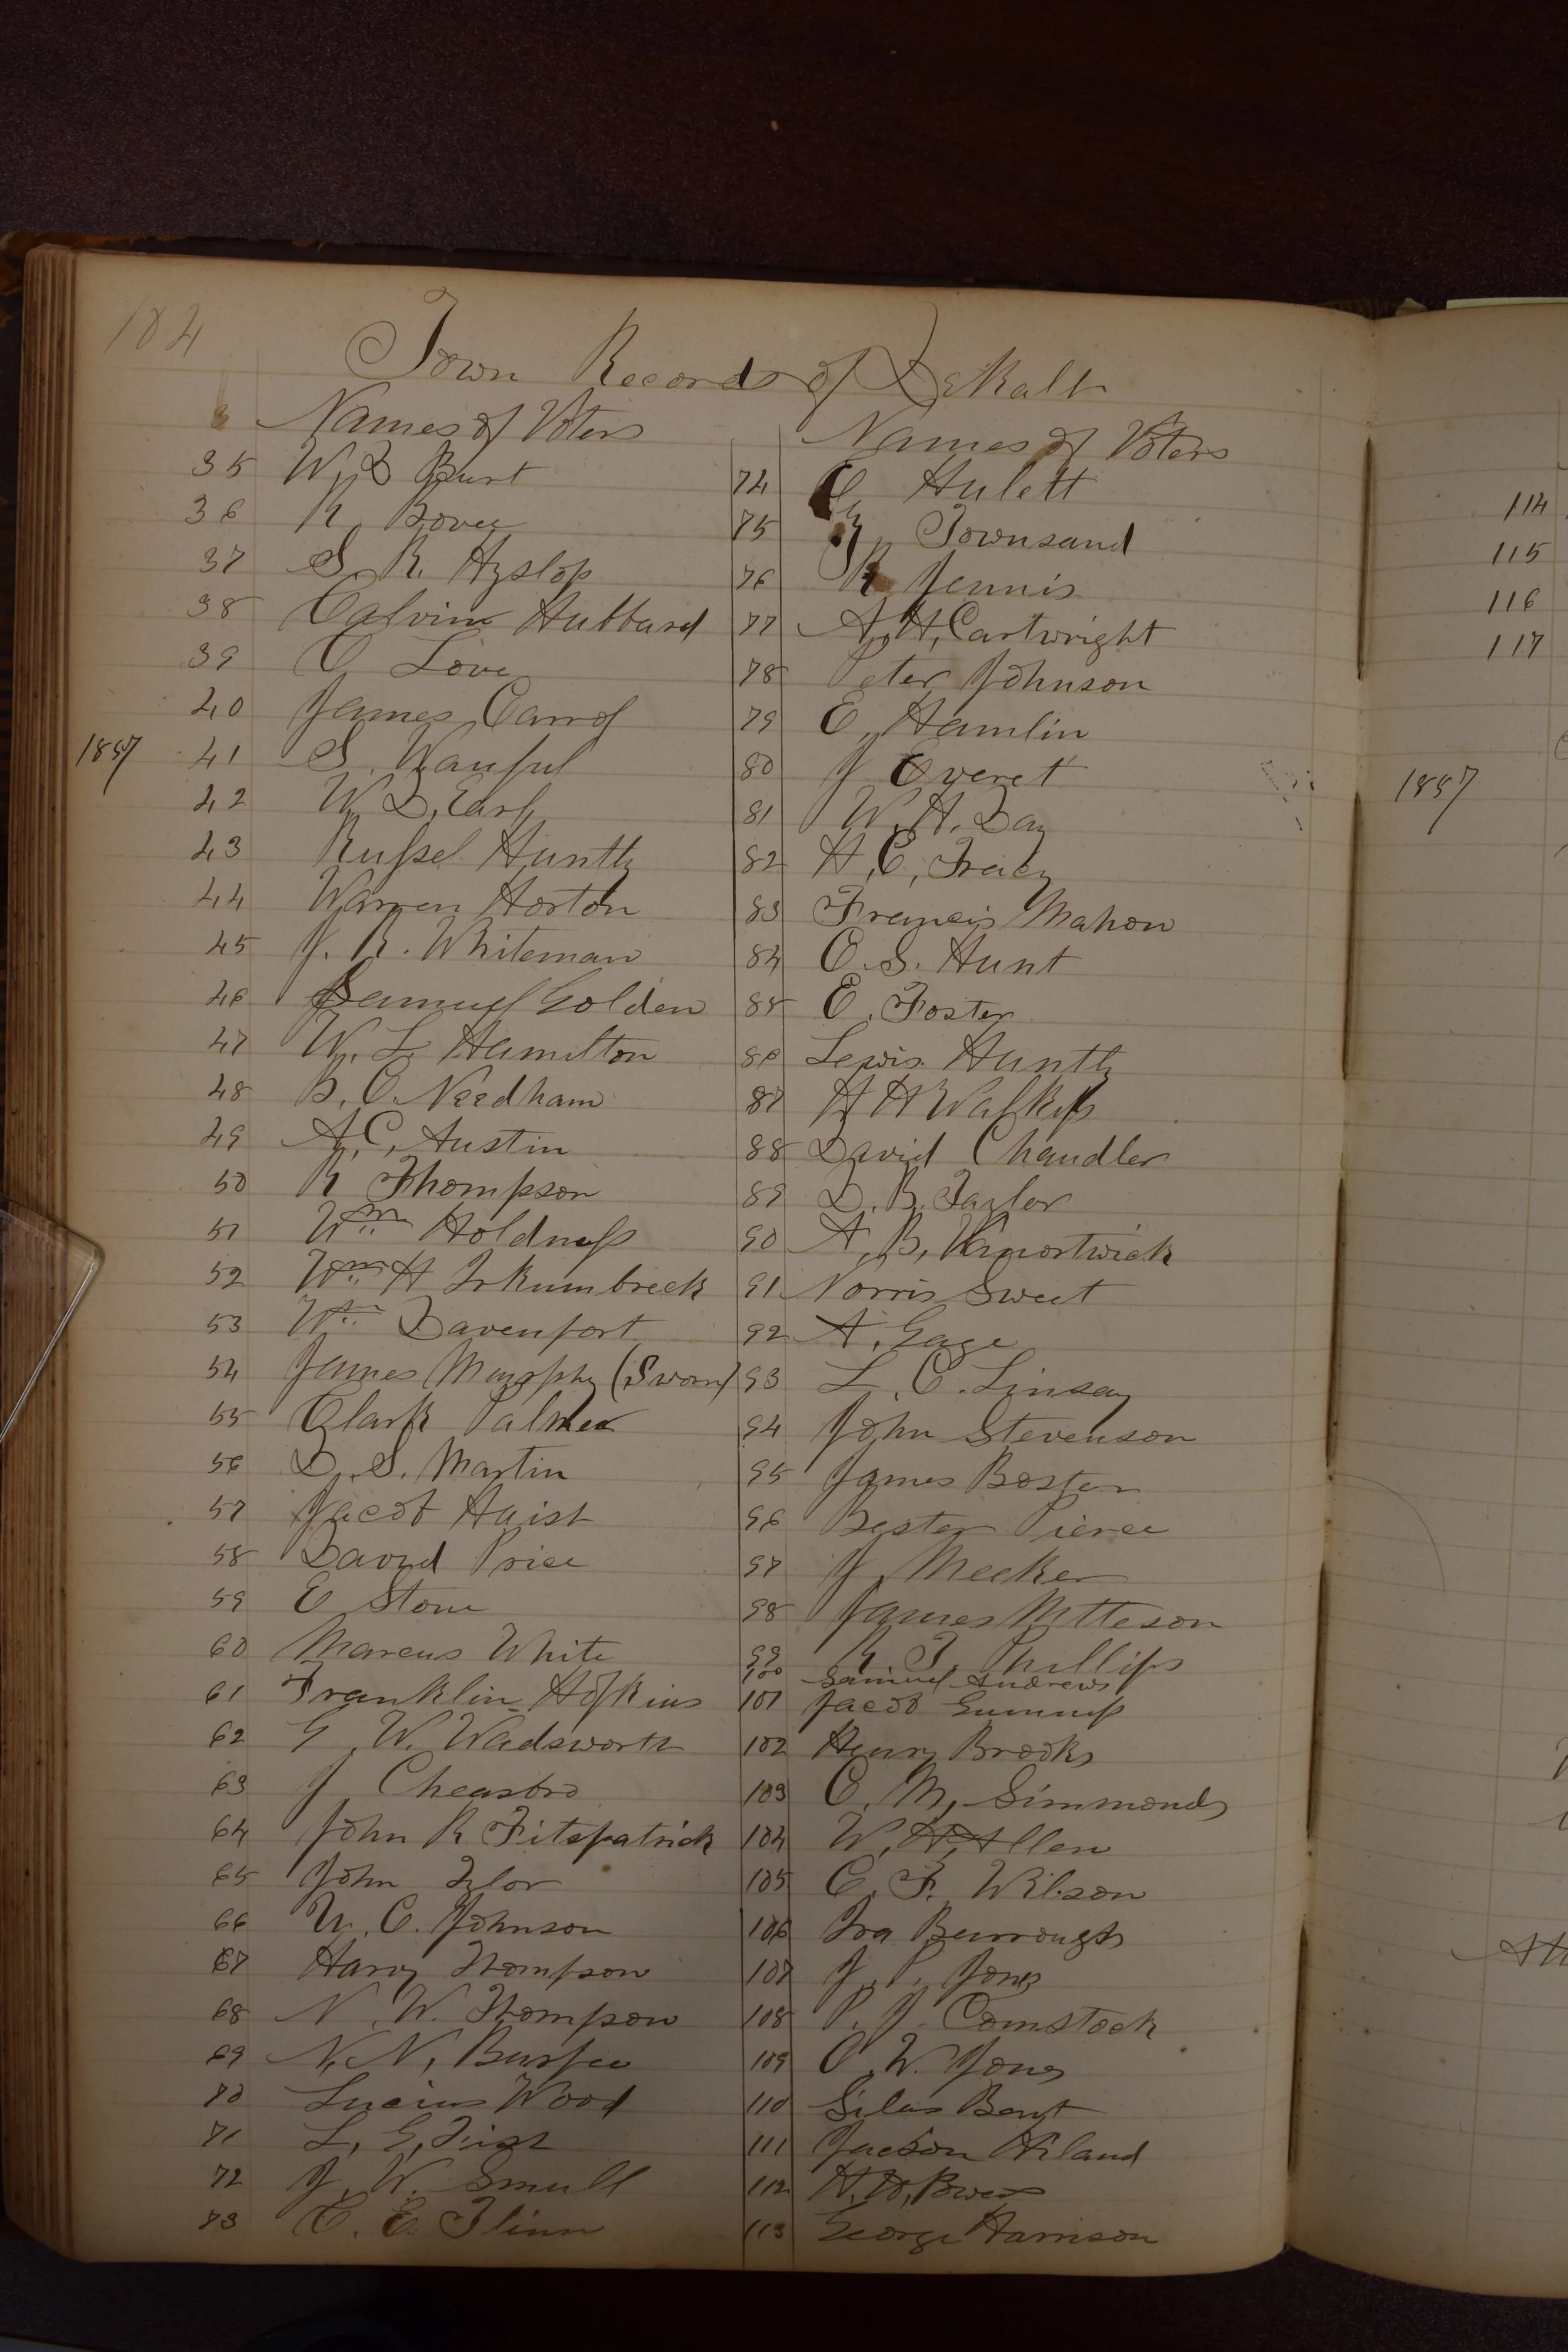 104
Town Records of DeKalb
Names of Voters
35 W. D. Burt
36 R. Bovee
37 S. R. Hyslop
38 Calvin Hubbard
39 O Love
40 James Carrol
1857 41 S.
42 W. D. Earl
43 Russel Huntly
44 Warren Horton
45 J. R. Whiteman
46 Samuel Golden
47 W. L. Hamilton
48 B. O. Needham
49 A. C. Austin
50 R Thompson
51 Wm Holdness
52 Wm H
53 Wm Davenport
54 James Murphy (Sworn)
55 Clark Palmer
56 D. S. Martin
57 Jacob Haish
58 David Price
59 E Stone
60 Marcus White
61 Franklin Hopkins
62 G. W. Wadsworth
63 J Cheasbro
64 John R Fitzpatrick
65 John Tylor
66 U. C. Johnson
67 Harvy Thompson
68 N. W. Thompson
69 N. N. Burpee
70 Lucius Wood
71 L. G.
72 J. W. Small
73 C. E. Flinn
Names of Voters
74 C. Hulett
75 Townsand
76 R Jennis
77 A. H. Cartwright
78 Peter Johnson
79 E. Hamlin
80 J Everet
81 W. H. Day
82 H. C. Tracy
83 Francis Mahon
84 O. S. Hunt
85 E. Foster
86 Lewis Huntly
87 H H
88 David Chandler
89 D. B. Taylor
90 A. B. Vanortwick
91 Norris Sweet
92 A. Gage
93 L. C. Linsay
94 John Stevenson
95 James Boston
96 Bester Pierce
97 J. Meeker
98 James Mtteson
99 R. T. Phillips
100 Samuel Andrews
101 Jacob Gummess
102 Henry Brooks
103 O. M. Simmonds
104 W. H. Allen
105 C. F. Wilson
106 Ira Burroughs
107 J. P. Jones
108 P. J. Comstock
109 O. W. Jones
110 Silas Bent
111 Jackson Hiland
112 H. H. Bowers
113 George Harrison
114
115
116
117
1857